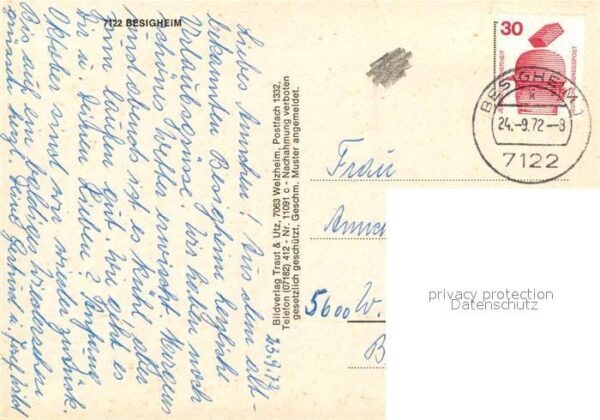 7122 BESIGHEIM
Liebes Annchen! Aus dem alt-
bekannten Besigheim herzliche
Urlaubsgrüsse. Wir haben noch
schönes Wetter erwischt. Morgens
und abends ist es kühl, aber
sonst gut. Wie geht es
Dir u. Deinen Lieben?
Oktober sind wir wieder zurück.
Bis auf ein baldiges Wiedersehen
23.9.72
Bildverlag Traut & Utz, 7063 Welzheim, Postfach 1332,
Telefon (07182) 412 - Nr. 11091 c - Nachahmung verboten
gesetzlich geschützt, Geschm. Muster angemeldet.
30
BUNDESPOST
BESIGHEIM
24.-9.72-8
7122
Frau
5600 W.
B
privacy protection
Datenschutz